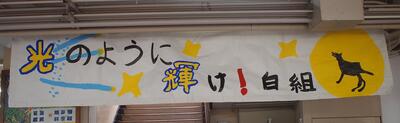 光のように輝け!白組